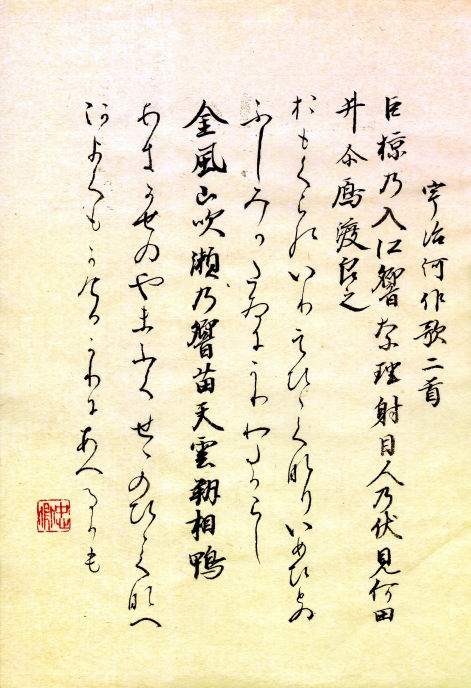 宇治河作歌二首
巨椋乃入江響奈理射目人乃伏見何田
井尓鴈渡良之
おもくらのいりえひゝくなりいめひとの
ふしみかたゐにかりわたるらし
金風山吹瀬乃響苗天雲翔相鴨
あきかせのやまふくせゝのひゝくなへ
あまくもかけるかりにあへるかも